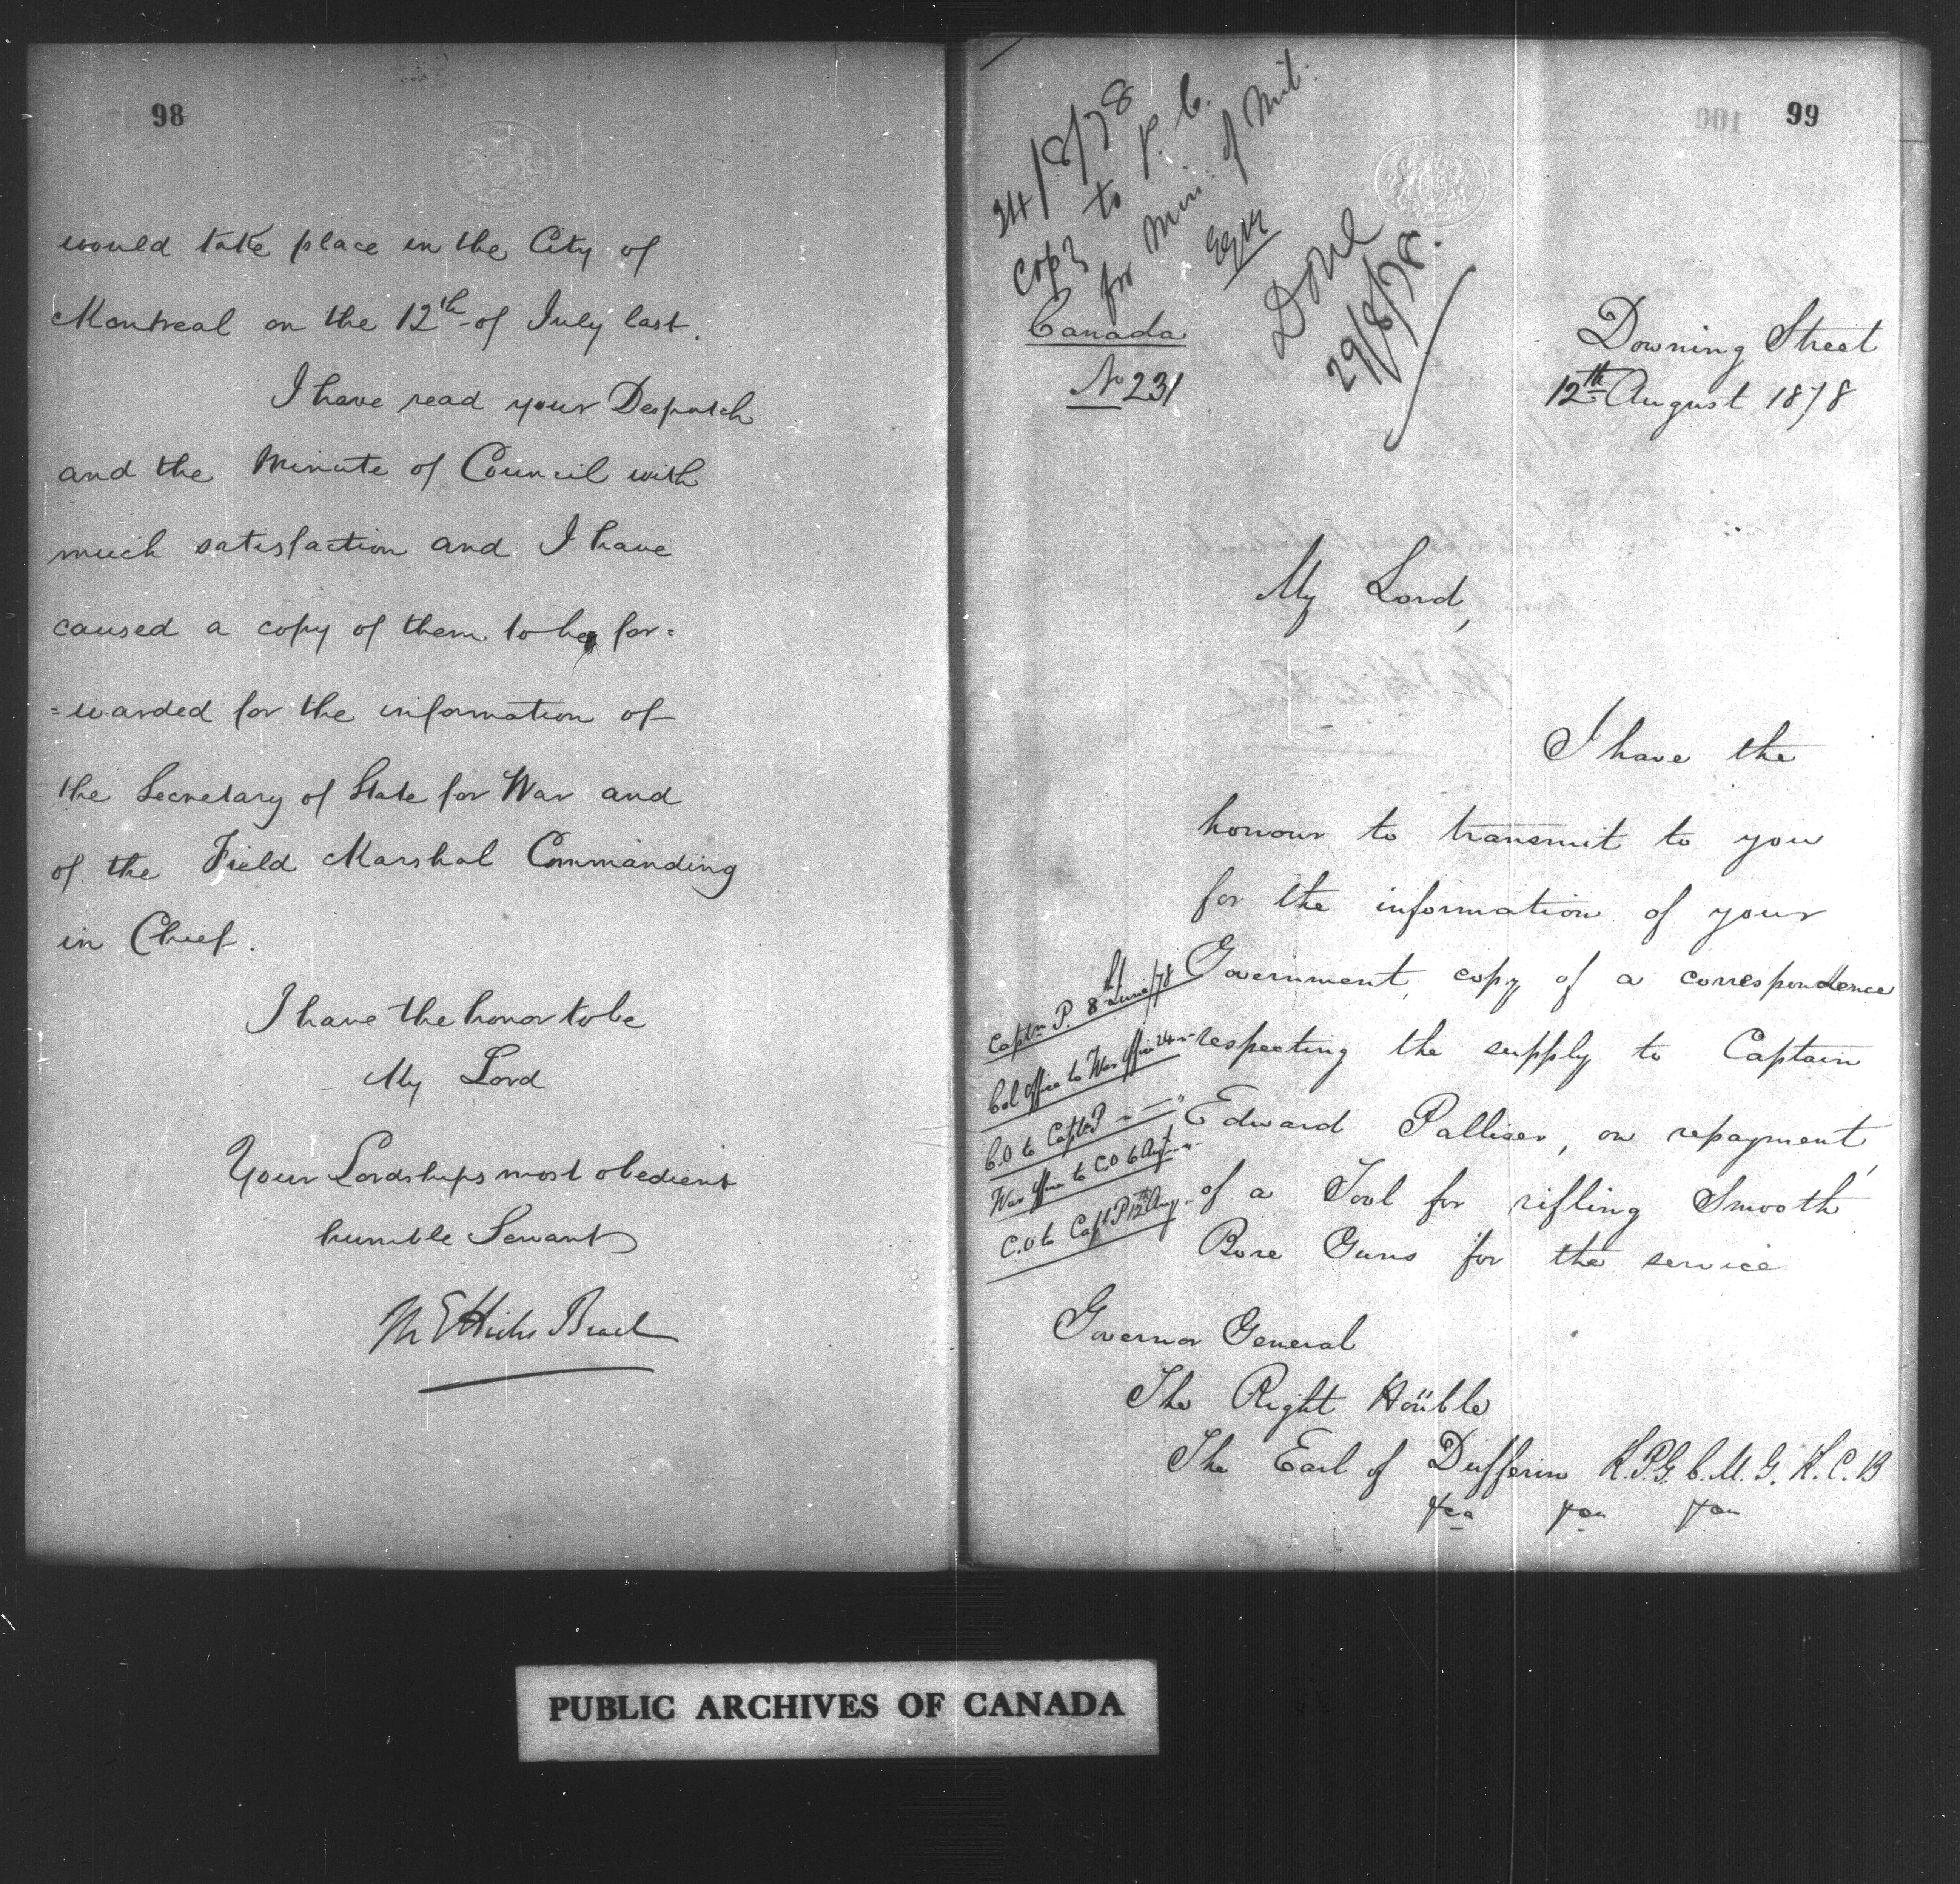 98
would take place in the City of
Montreal on the 12th of July last.
I have read your Despatch
and the Minute of Council with
much satisfaction and I have
caused a copy of them to be for=
=warded for the information of
the Secretary of State for War and
of the Field Marshal Commanding
in Chief.
I have the honor to be
My Lord
Your Lordships most obedient
humble Servant
M E Hicks Beach
99
24/8/78
Copy to P. C.
for Min. of Mil.
Done
29/8/78.
Canada
No 231
Downing Street
12th August 1878
My Lord,
I have the
honour to transmit to you
for the information of your
Government, copy of a correspondence
respecting the supply to Captain
Edward Palliser, on repayment,
of a Tool for rifling Smooth
Bore Guns for the service
Captn P. 8th June/78
Col Office to War Office 24 "
C.O to Captn P " — "
War Office to C.O 6 Aug
C.O to Captn P 12th Aug
Governor General
The Right Honble
The Earl of Dufferin K.P. G.C.M.G. K.C.B
&ca &ca &ca
PUBLIC ARCHIVES OF CANADA